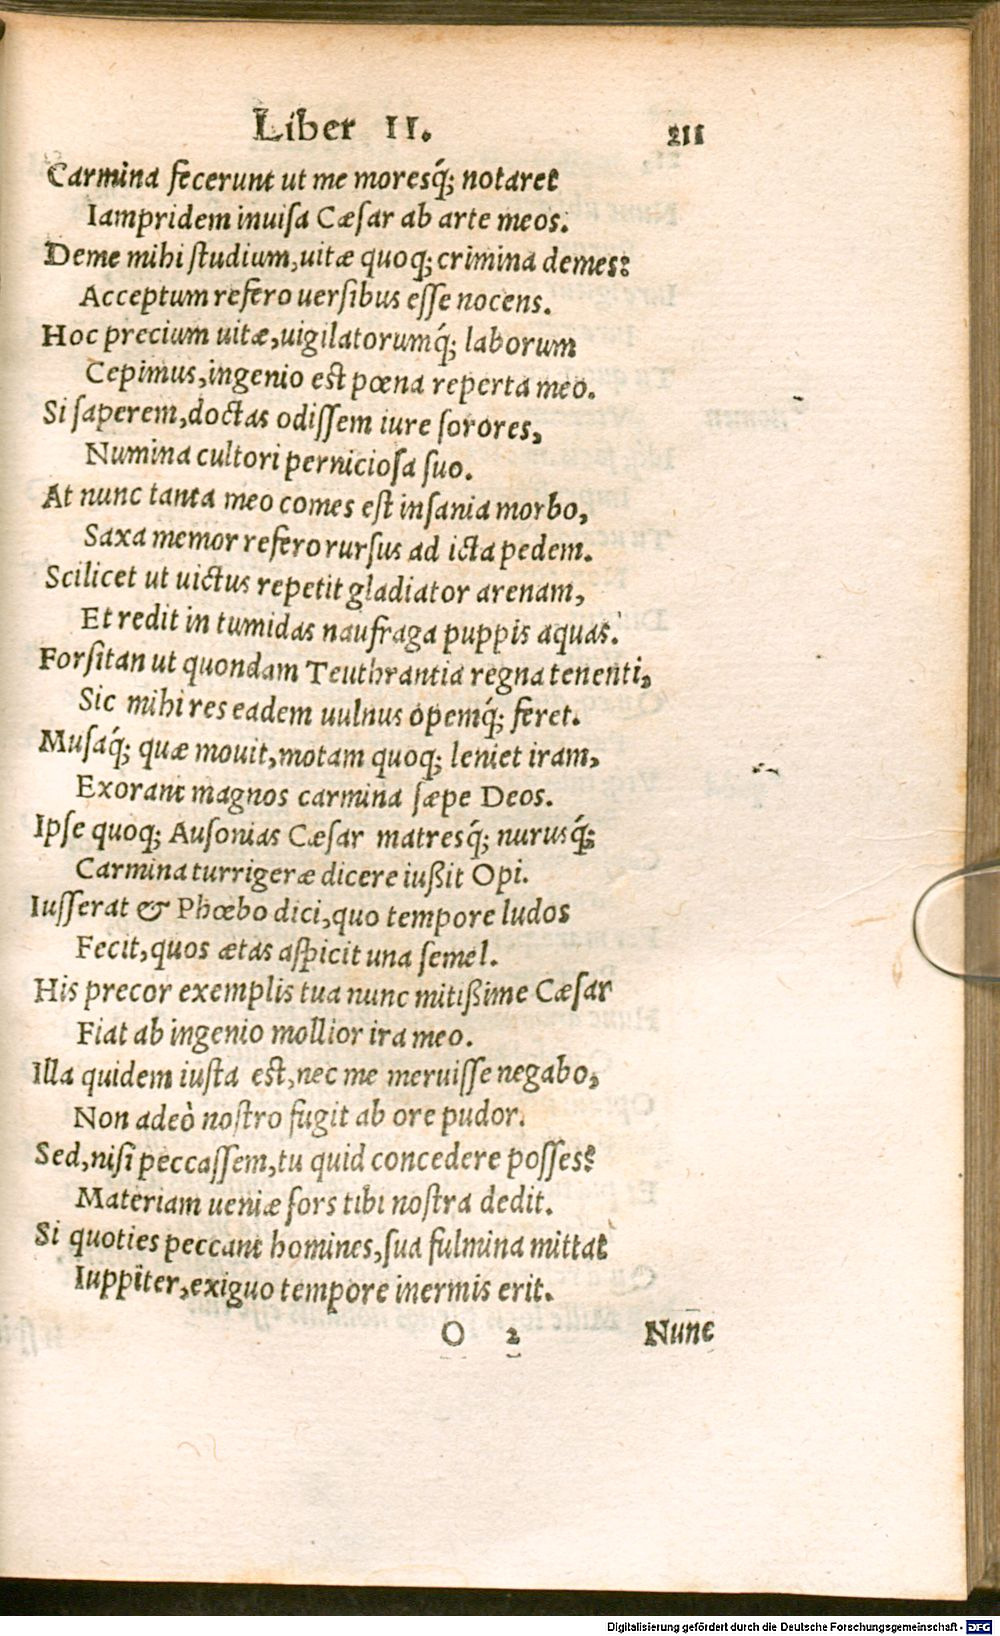 Liber II. 211
Carmina fecerunt ut me moresq́; notaret
Iampridem inuisa Cæsar ab arte meos.
Deme mihi studium, uitæ quoq; crimina demes:
Acceptum refero uersibus esse nocens.
Hoc precium uitæ, uigilatorumq́; laborum
Cepimus, ingenio est pœna reperta meo.
Si saperem, doctas odissem iure sorores,
Numina cultori perniciosa suo.
At nunc tanta meo comes est insania morbo,
Saxa memor refero rursus ad icta pedem.
Scilicet ut uictus repetit gladiator arenam,
Et redit in tumidas naufraga puppis aquas.
Forsitan ut quondam Teuthrantia regna tenenti,
Sic mihi res eadem uulnus opemq́; feret.
Musaq́; quæ mouit, motam quoq; leniet iram,
Exorant magnos carmina sæpe Deos.
Ipse quoq; Ausonias Cæsar matresq́; nurusq́;
Carmina turrigeræ dicere iußit Opi.
Iusserat & Phœbo dici, quo tempore ludos
Fecit, quos ætas aspicit una semel.
His precor exemplis tua nunc mitißime Cæsar
Fiat ab ingenio mollior ira meo.
Illa quidem iusta est, nec me meruisse negabo,
Non adeò nostro fugit ab ore pudor.
Sed, nisi peccassem, tu quid concedere posses?
Materiam ueniæ sors tibi nostra dedit.
Si quoties peccant homines, sua fulmina mittat
Iuppiter, exiguo tempore inermis erit.
O 2 Nunc
Digitalisierung gefördert durch die Deutsche Forschungsgemeinschaft - DFG